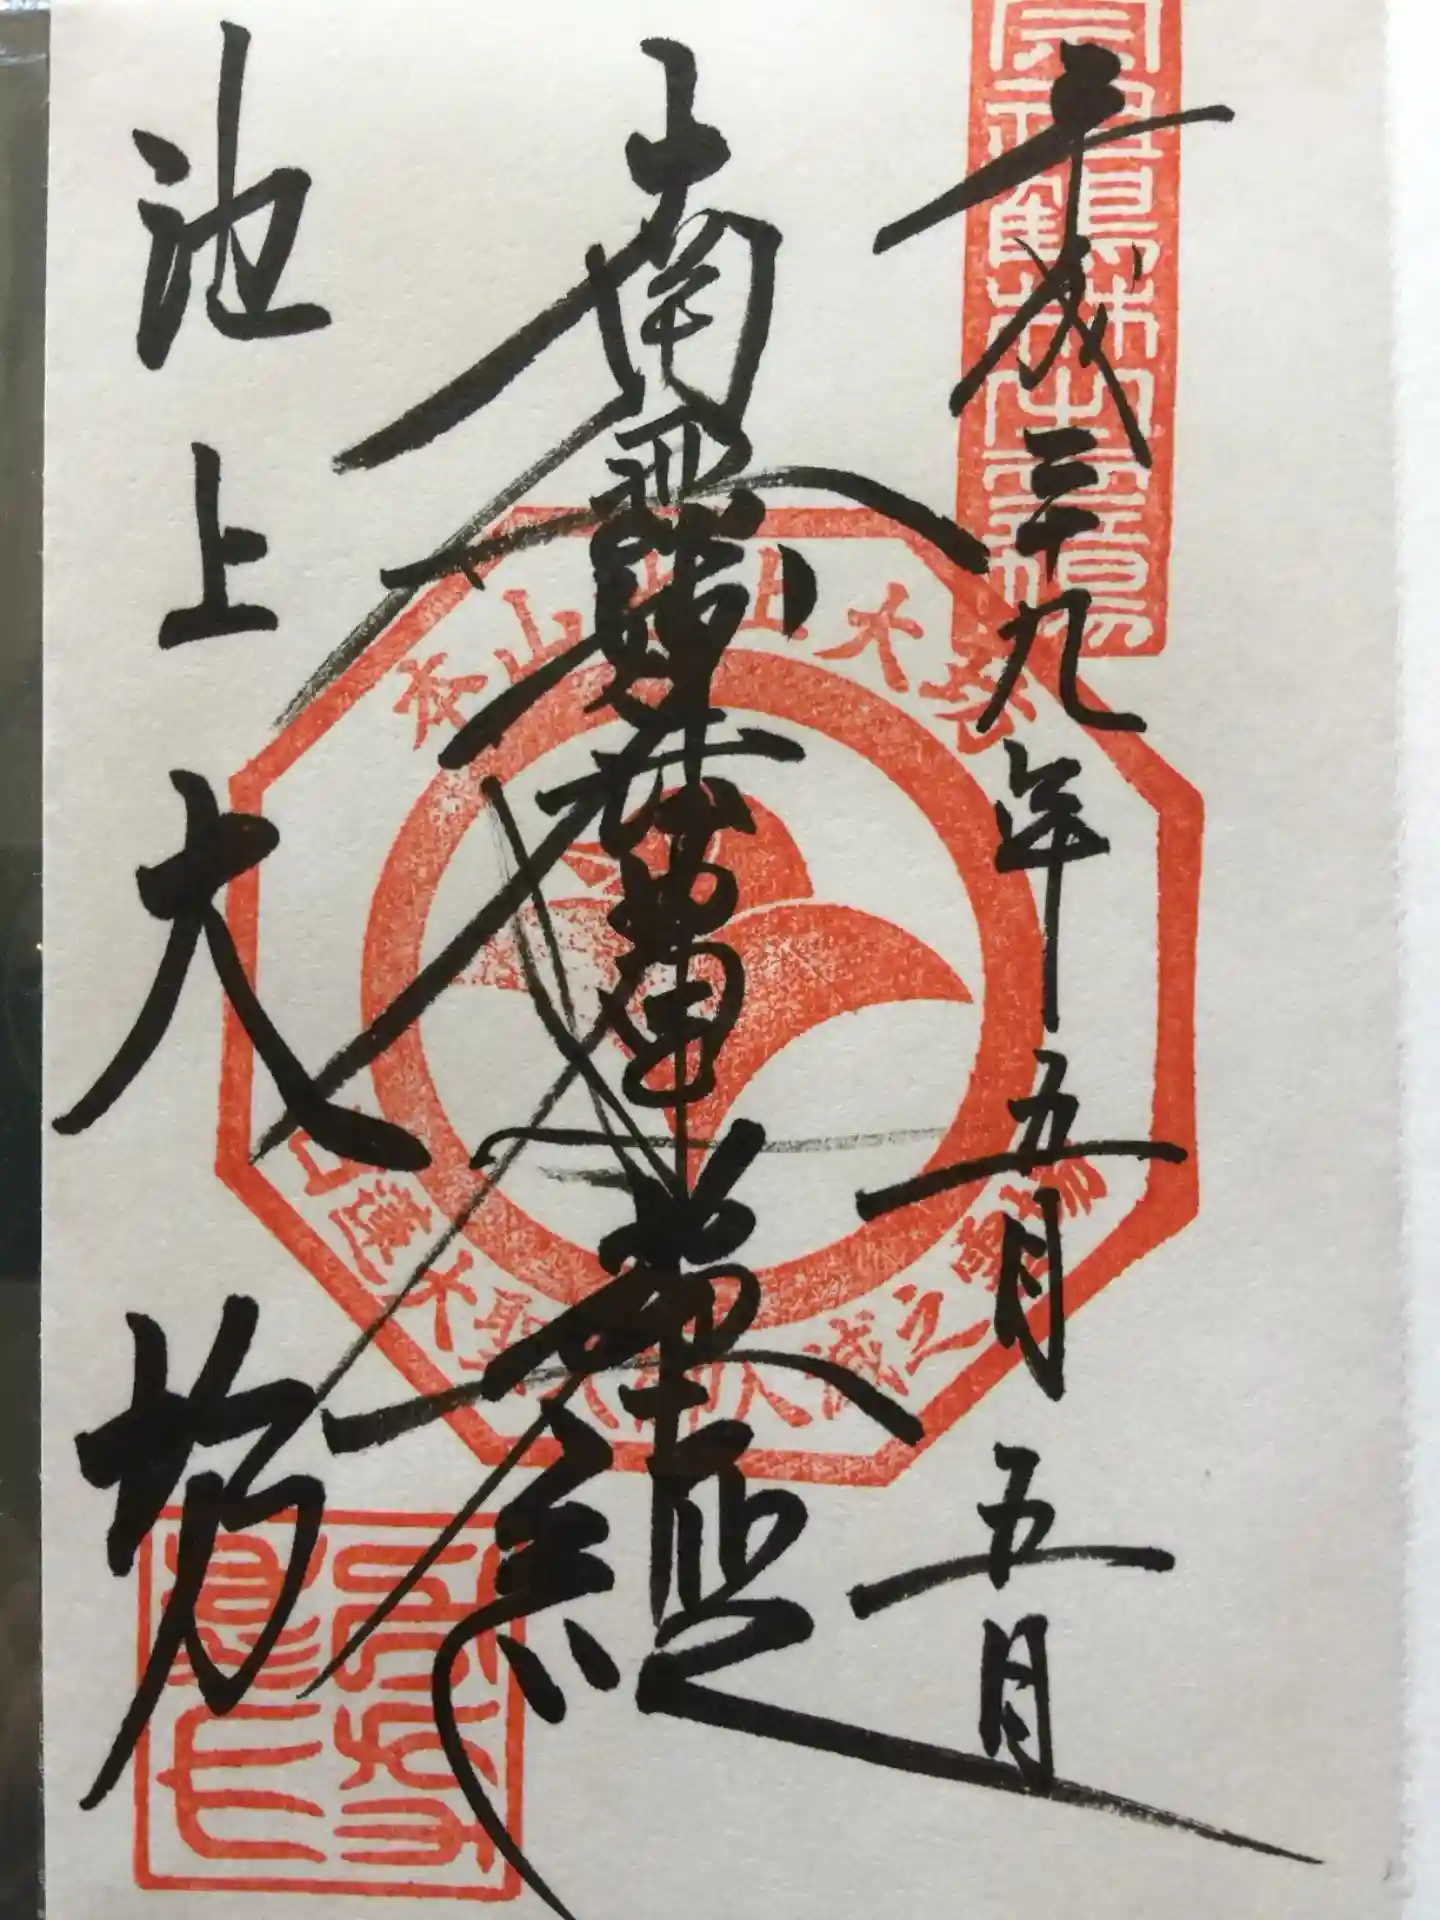 平成二十九年五月五日
南無妙法蓮華經
池上大坊
本山池上大坊
日蓮大聖人御入滅之靈場